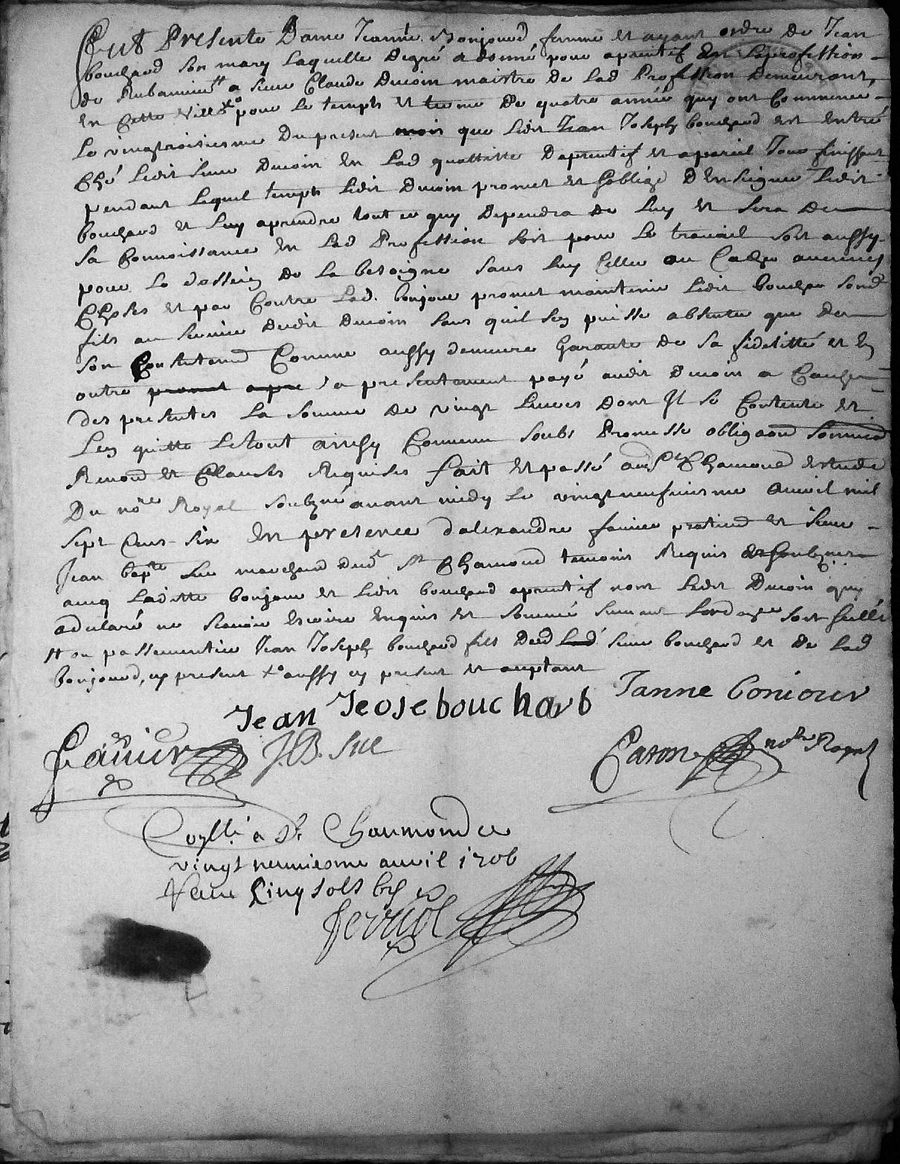 Fut Presente Dame Jeanne Bonjourd femme et ayant ordre de Jean
bouchard son mary laquelle de gré a donné pour aprentif en la profession
de Rubannier a sieur Claude Ducoin maistre de lad profession demeurant
en cette ville pour le temps et terme de quatre année quy ont commencé
le vingtroisiesme du present mois que ledit Jean Joseph bouchard est entré
ché ledit sieur Ducoin en lad quallitté d'aprentif et a pareil Jour finissant
pendant lequel temps ledit Ducoin promet et soblige denseigner ledit
bouchard et luy aprendre tout ce quy dependra de luy et sera de
sa connoissance en lad profession soit pour le travail soit aussy
pour le dassein de la besoigne sans luy celler ou cacher aucunes
choses et par contre lad. bonjour promet maintenir ledit bouchard sond
fils au service dudit Ducoin sans quil sen puisse absenter que de
son consentement comme aussy demeure garante de sa fidellitté et en
outre promet apre a presentement payé audit Ducoin a cause
des presentes la somme de vingt livres dont Il se contente et
len quitte le tout ainsy convenu soubs promesse obligaon
Renon et clauses Requises fait et passé aud St Chamond estude
du nore Royal soubzne avant midy le vingt neufviesme avril mil
sept cens six en presence d'alexandre favier praticien et sieur
Jean bapte sue marchand dud St Chamond temoins Requis et soubznes
avecq laditte bonjour et ledit bouchard aprentif non ledit Ducoin quy
a declaré ne scavoir escrire enquis et sommé suivant lordce soit scellé
ou passementier Jean Joseph bouchard fils dud sieur bouchard et de lad
bonjourd, cy present aussy cy present et acceptant
Jean Jeosebouchard Janne boniour
favier J.B. Sue Caron nore Royal
Collé a St Chaumond ce
vingt neuviesme avril 1706
Receu cinq sols
ferriol